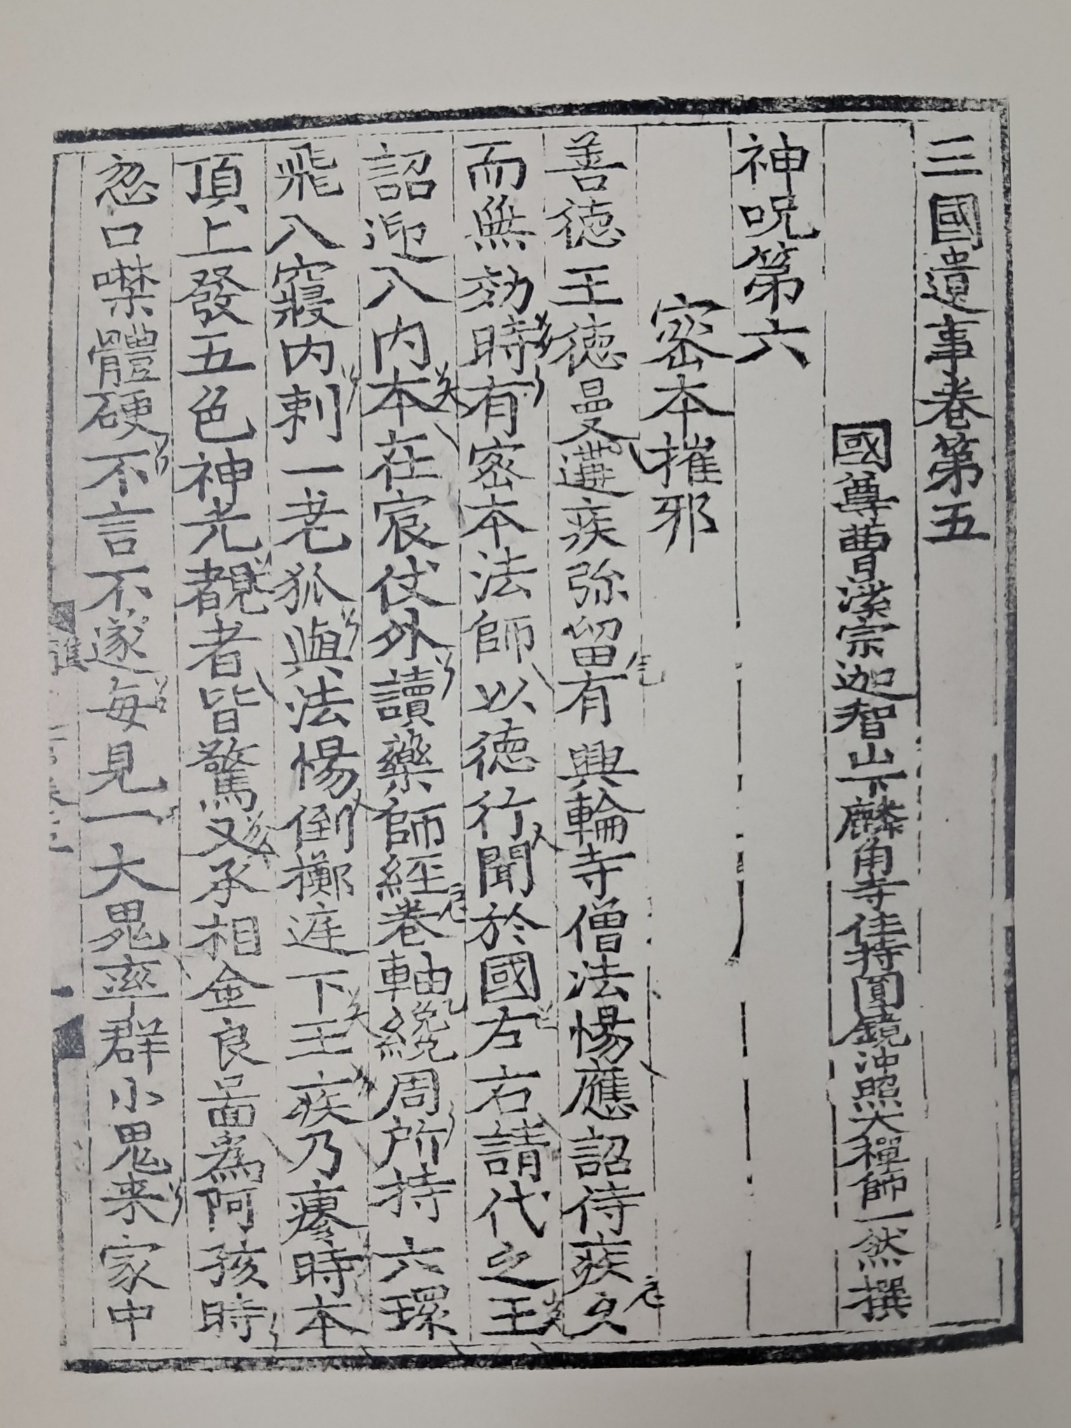 三國遺事卷第五
國尊曹溪宗迦智山下麟角寺住持圓鏡沖照大禪師一然撰
神呪第六
密本摧邪
善徳王徳曼遘疾弥留有興輪寺僧法惕應詔侍疾久
而無効時有密本法師以徳行聞於國左右請代之王
詔迎入内本在宸仗外讀藥師經卷軸纔周所持六環
飛入寢内刺一老狐與法惕倒擲庭下王疾乃瘳時本
頂上發五色神光覩者皆驚又承相金良啚為阿孩時
忽口噤體硬不言不遂每見一大鬼率群小鬼来家中